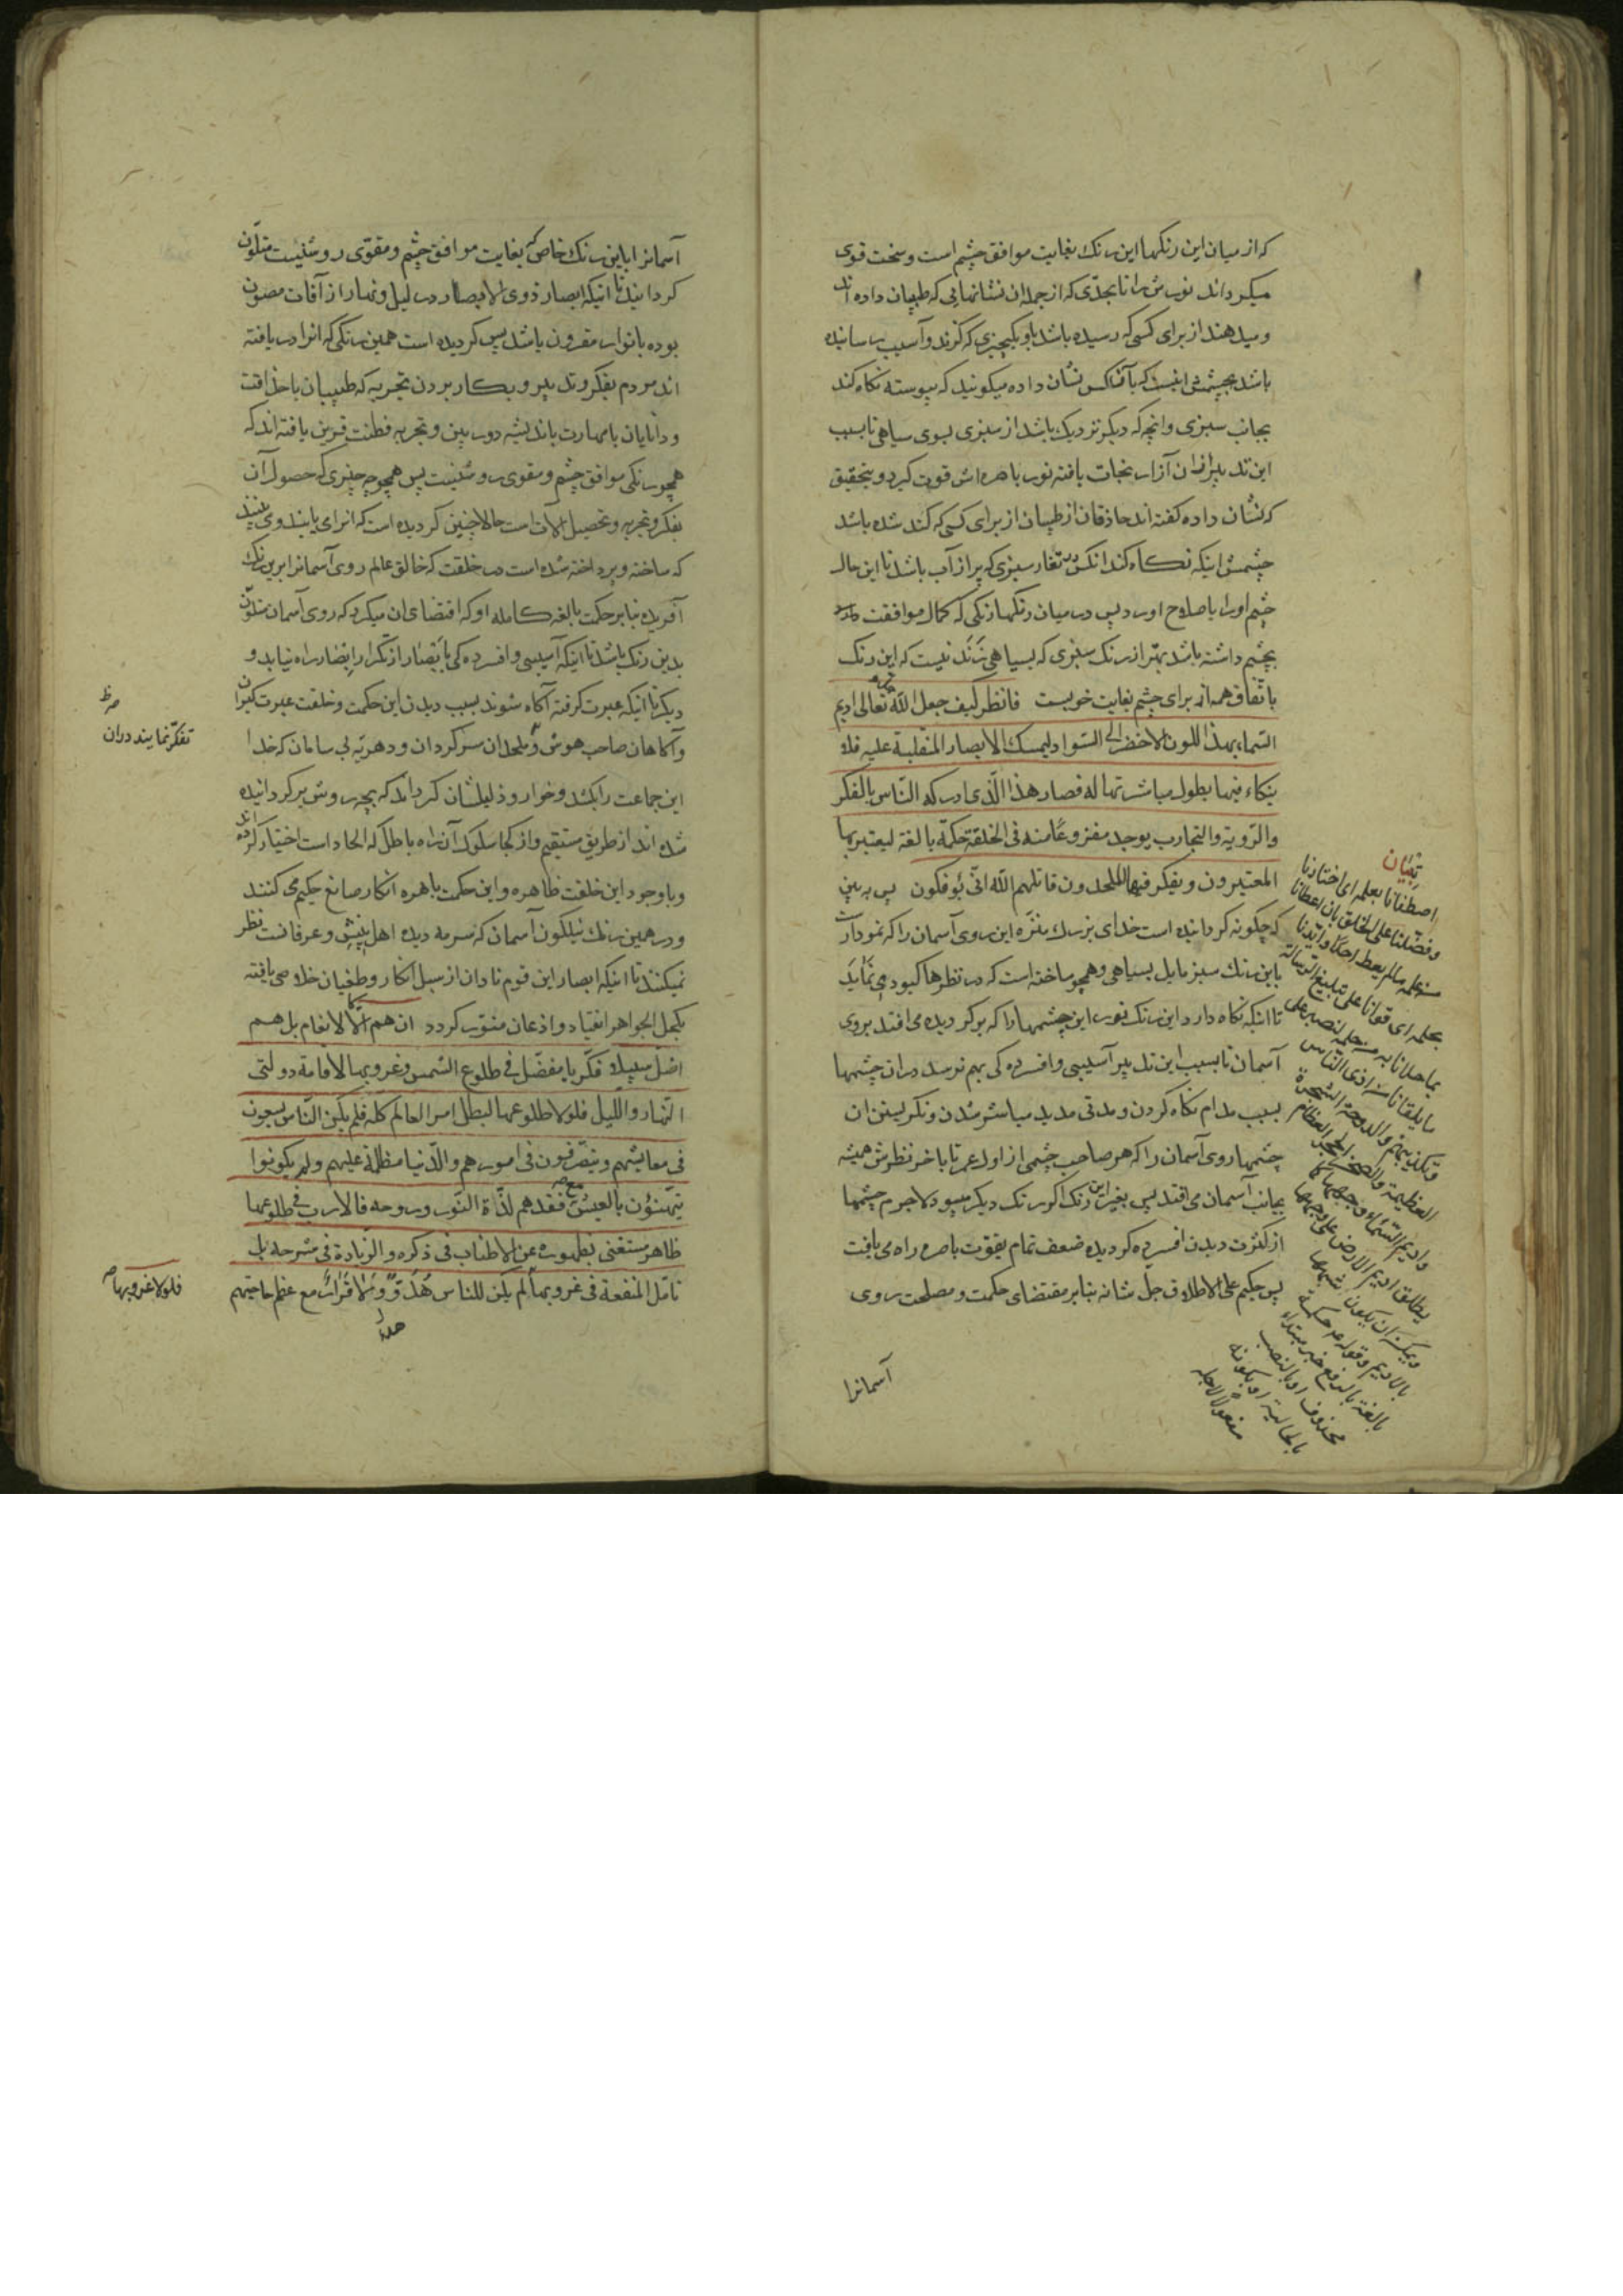 که از میان این رنکها این رنك بغایت موافق چشم است و سخت قوی
میکرداند نورش را تا بحدّی که از جمله ان نشانهایی که طبیبان داده اند
و میدهند از برای کسی که رسیده باشد باو یکچیزی که کزند و آسیب رسانیده
باشد بچشمش اینست که بآنکس نشان داده میکویند که پیوسته نکاه کند
بجانب سبزی و انچه که دیکر نزدیك باشد از سبزی بسوی سیاهی تا بسبب
این تدبیر ازان آزار نجات یافته نور باصره اش قوت کیرد و بتحقیق
که نشان داده کفته اند حاذقان از طبیبان از برای کسی که کند شده باشد
چشمش اینکه نکاه کند انکس در تغار سبزی که پر از آب باشد تا این حال
چشم او را باصلاح اورد پس در میان رنکها رنکی که کمال موافقت
بچشم داشته باشد بهتر از رنك سبزی که بسیاهی زند نیست که این رنك
باتفاق همه از برای چشم بغایت خوبست فانظر کیف جعل الله تعالی ادیم
السماء بهذا اللون الاخضر الی السّواد لیمسك الابصار المنقلبة علیه فلا
ینکاء فیها بطول مباشرتها له فصار هذا الّذی ادرکه النّاس بالفکر
والرّویة والتجارب یوجد مفروغا منه فی الخلقة حکمة بالغة لیعتبر بها
المعتبرون و یفکر فیها الملحدون قاتلهم الله انّی یؤفکون پس به بین
که چکونه کردانیده است خدای بزرك منزّه این روی آسمان را که نمودار است
باین رنك سبز مایل بسیاهی و همچو ساخته است که در نظرها کبود می نماید
تا اینکه نکاه دارد این رنك نور این چشمها را که بر کردیده می افتد بروی
آسمان تا بسبب این تدبیر آسیبی و افسرده کی بهم نرسد دران چشمها
بسبب مدام نکاه کردن و مدتی مدید مباشر شدن و نکریستن ان
چشمها روی آسمان را که هر صاحب چشمی از اول عمر تا باخر نظرش همیشه
بجانب آسمان می افتد پس بغیر این رنك اکر رنك دیکر میبود لاجرم چشمها
از کثرت دیدن افسرده کردیده ضعف تمام بقوّت باصره راه می یافت
پس حکیم علی الاطلاق جلّ شانه بنابر مقتضای حکمت و مصلحت روی
آسمانرا
تبیان
اصطفانا بعلمه ای اختارنا
و فضّلنا علی الخلق بان اعطانا
من علمه ما لم یعط احدًا و ایّدنا
بحلمه ای قوانا علی تبلیغ الرسالة
بما حلانا به من حلمه لنصبر علی
ما یلقانا من اذی النّاس
و تکذیبهم والدوحة الشجرة
العظیمة والصخر الحجر العظام
و ادیم السّماء وجهها کما
یطلق ادیم الارض علی وجهها
و یمکن ان یکون شبهها
بالادیم و قوله حکمة
بالغة بالرفع خبر مبتداء
محذوف او بالنصب
بالحالیة او بکونه
مفعولًا لاجله
آسمانرا باین رنك خاص که بغایت موافق چشم و مقوّی روشنیست متلوّن
کردانید تا اینکه ابصار ذوی الابصار در لیل و نهار از آفات مصون
بوده بانوار مقرون باشد پس کردیده است همین رنکی که انرا دریافته
اند مردم بفکر و تدبیر و بکار بردن تجربه که طبیبان با حذاقت
و دانایان با مهارت باندیشه دور بین و تجربه فطنت قرین یافته اند که
همچو رنکی موافق چشم و مقوی روشنیست پس همچو چیزی که حصول آن
بفکر و تجربه و تحصیل الات است حالا چنین کردیده است که انرا می یابند و می بینند
که ساخته و پرداخته شده است در خلقت که خالق عالم روی آسمانرا برین رنك
آفریده بنابر حکمت بالغه کامله او که اقتضای ان میکرد که روی آسمان متلوّن
بدین رنك باشد تا اینکه آسیبی و افسرده کی بابصار از تکرار ابصار راه نیابد و
دیکر تا اینکه عبرت کرفته آکاه شوند بسبب دیدن این حکمت و خلقت عبرت کیران
و آکاهان صاحب هوش و ملحدان سرکردان و دهریّه بی سامان که خدا
این جماعت را بکشد و خوار و ذلیلشان کرداند که بچه روش بر کردانیده
شده اند از طریق مستقیم و از کجا سلوك آن راه باطل که الحاد است اختیار کرده اند
و باوجود این خلقت ظاهره و این حکمت باهره انکار صانع حکیم می کنند
و در همین رنك نیلکون آسمان که سرمه دیده اهل بینش و عرفانست نظر
نمیکنند تا اینکه ابصار این قوم نادان از سبل انکار و طغیان خلاصی یافته
بکحل الجواهر انقیاد و اذعان منوّر کردد ان هم الّا کالانعام بل هم
اضلّ سبیلا فکّر یا مفضّل فی طلوع الشمس و غروبها لاقامة دولتی
النّهار واللّیل فلولا طلوعها لبطل امر العالم کله فلم یکن النّاس یسعون
فی معایشهم و یتصرّفون فی امورهم والدّنیا مظلمة علیهم ولم یکونوا
یتهنّؤن بالعیش مع فقدهم لذّة النّور و روحه فالارب فی طلوعها
ظاهر مستغنی بظهوره عن الاطناب فی ذکره والزیادة فی شرحه بل
تامّل المنفعة فی غروبها لم یکن للناس هدوّ ولا قرار مع عظم حاجتهم
هدء
تفکّر نمایند دران
فلولا غروبها